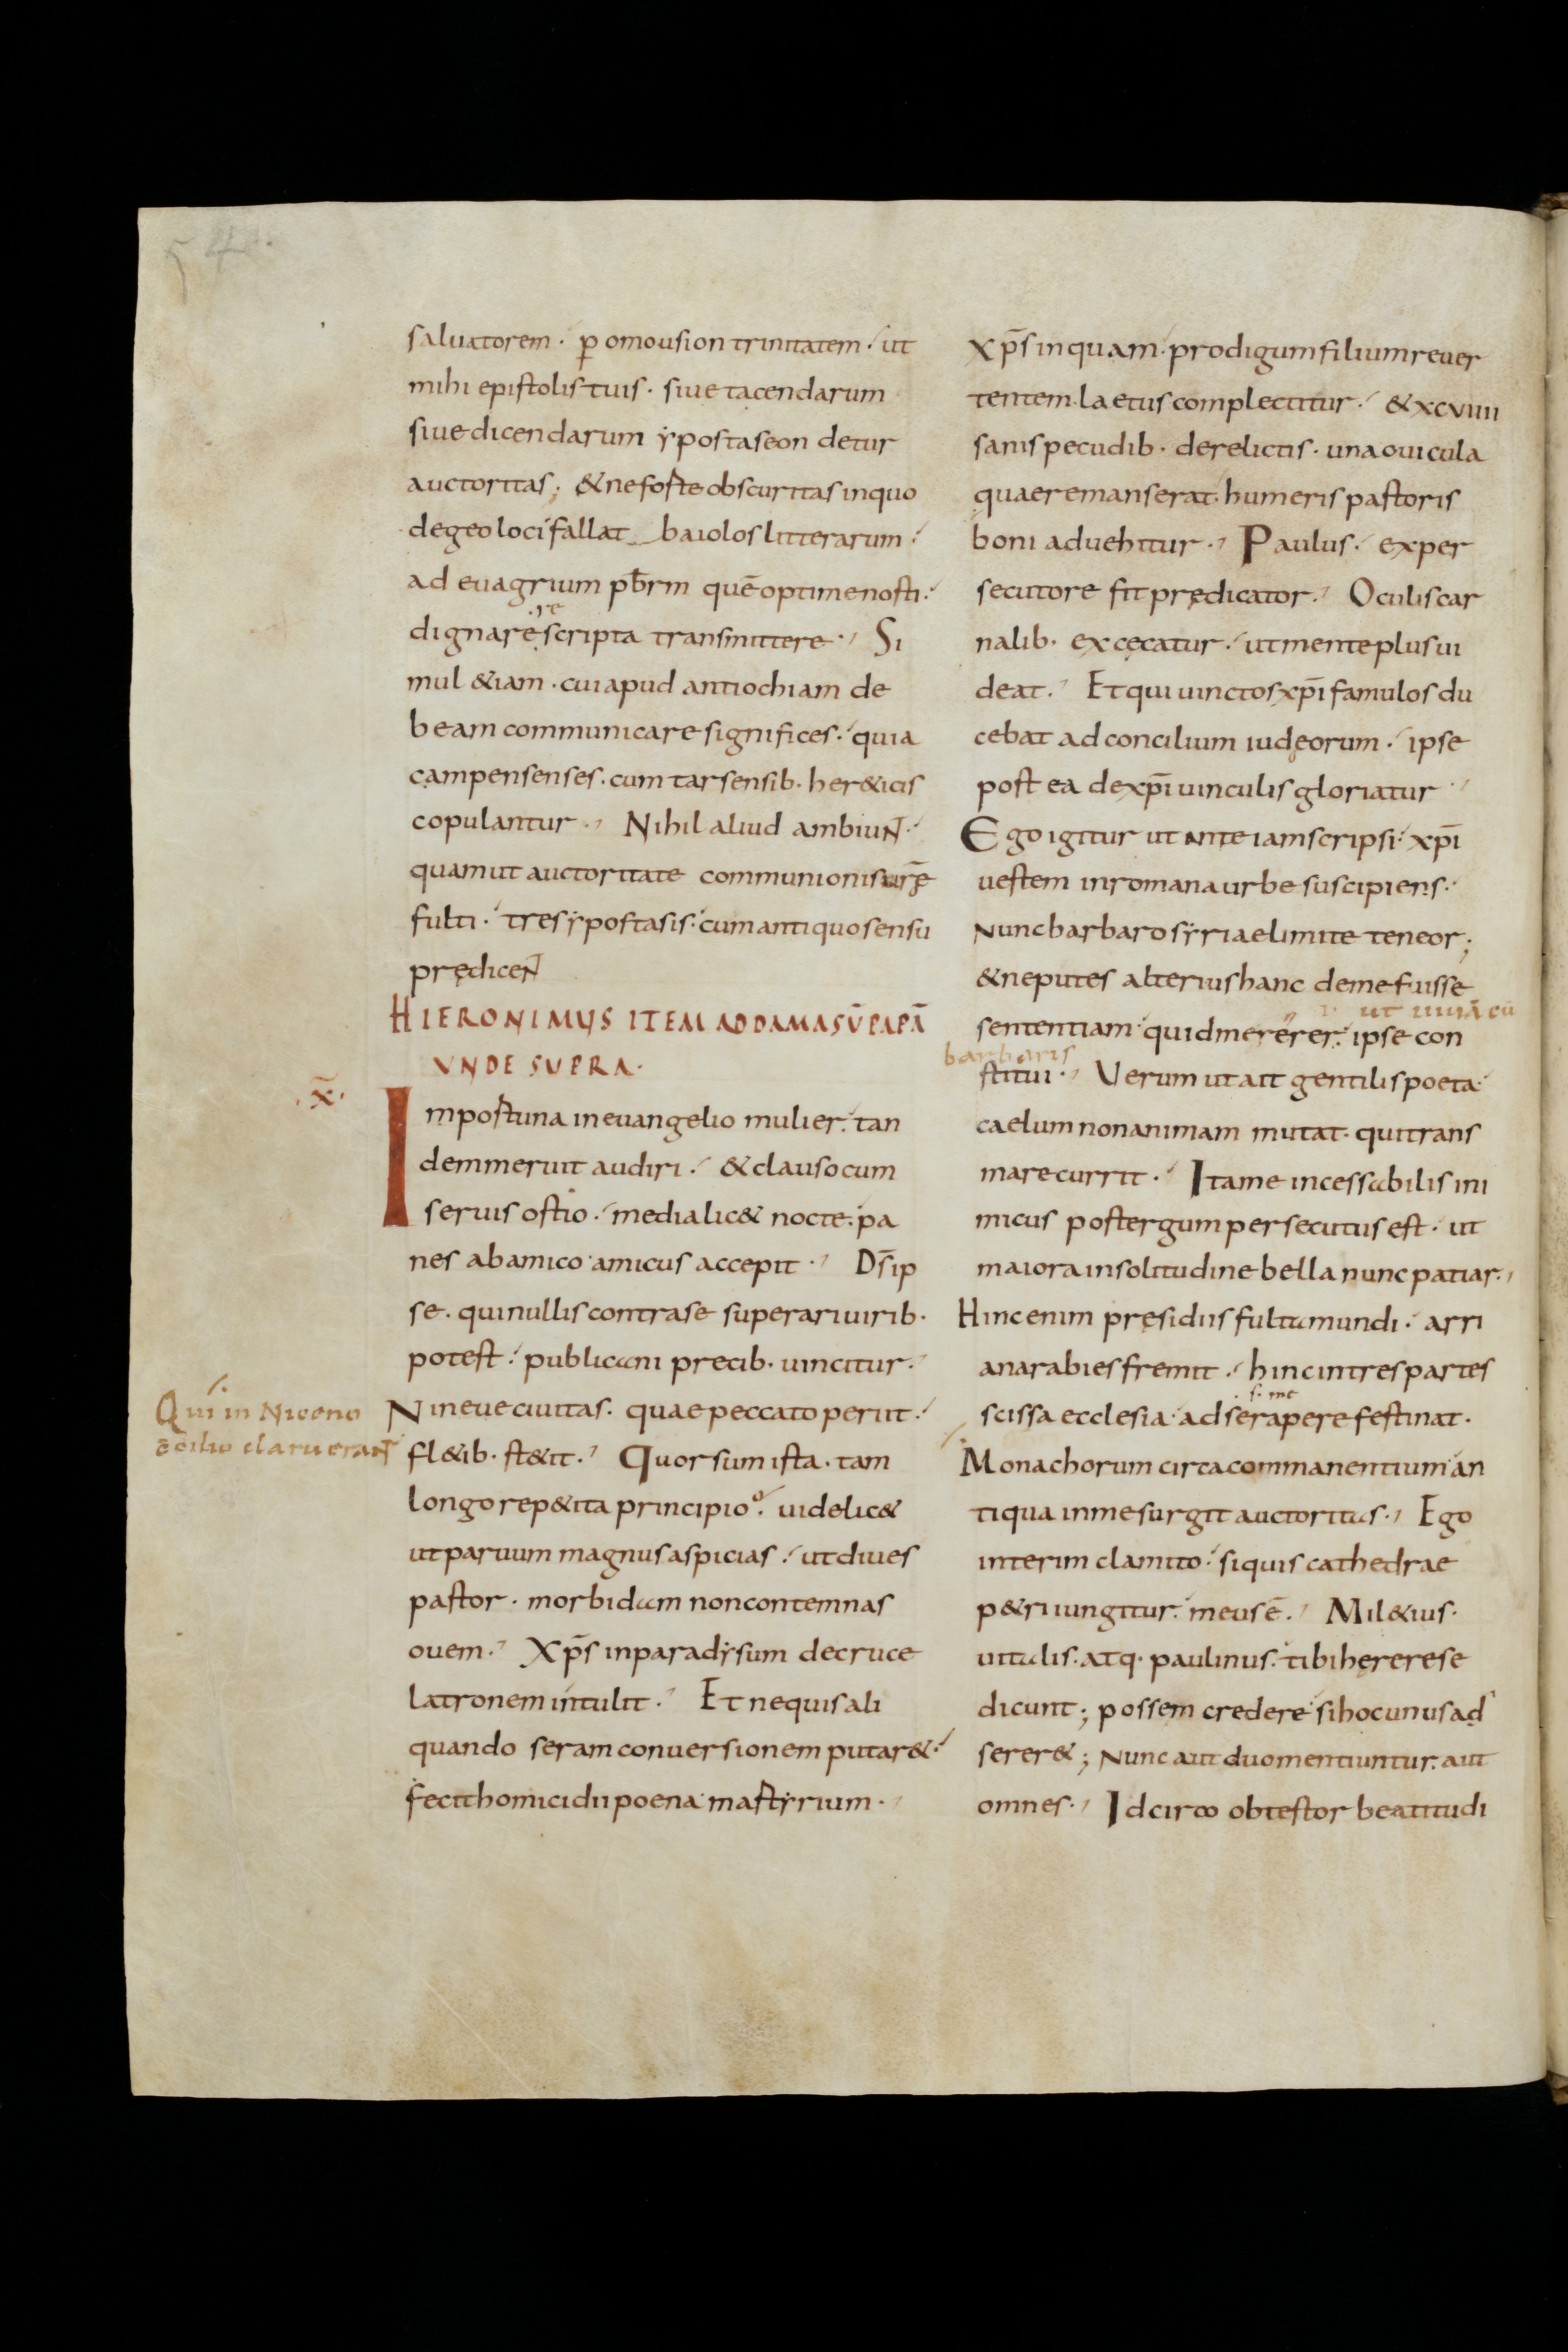 54.
saluatorem · ꝑ omousion trinitatem · ut
mihi epistolis tuis · siue tacendarum
siue dicendarum ypostaseon detur
auctoritas; & ne forte obscuritas in quo
dego loci fallat baiolos litterarum ·
ad euagrium pb̄rm quē optime nosti ·
dignare scripta transmittere · Si
mul &iam · cui apud antiochiam de
beam communicare significes · quia
campensenses · cum tarsensib · her&icis
copulantur · Nihil aliud ambiunt ·
quam ut auctoritate communionis urę̄
fulti · tres ypostasis · cum antiquo sensu
prędicent
HIERONIMUS ITEM AD DAMASŪ PAPĀ
UNDE SUPRA ·
· x̄ ·
Importuna in euangelio mulier · tan
dem meruit audiri · & clauso cum
seruis ostio · media lic& nocte · pa
nes ab amico amicus accepit · Ds̄ ip
se · qui nullis contra se superari uirib ·
potest · publicani precib · uincitur ·
Nineue ciuitas · quae peccato periit ·
Qui in Niceno
c̄cilio claruerant
fl&ib · st&it · Quorsum ista · tam
longo rep&ita principio · uidelic&
ut paruum magnus aspicias · ut diues
pastor · morbidam non contemnas
ouem · Xp̄s in paradysum de cruce
latronem intulit · Et ne quis ali
quando seram conuersionem putar& ·
fecit homicidii poena martyrium ·
Xp̄s inquam · prodigum filium reuer
tentem · laetus complectitur · & xcviiii
sanis pecudib · derelictis · una ouicula
quae remanserat · humeris pastoris
boni aduehitur · Paulus · ex per
secutore fit prędicator · Oculis car
nalib · excęcatur · ut mente plus ui
deat · Et qui uinctos xp̄i famulos du
cebat ad concilium iudęorum · ipse
post ea de xp̄i uinculis gloriatur
Ego igitur ut ante iam scripsi · xp̄i
uestem in romana urbe suscipiens ·
Nunc barbaro syriae limite teneor;
& ne putes alterius hanc de me fuisse
ut uiuā cū
sententiam · quid mererer · ipse con
barbaris
stitui · Verum ut ait gentilis poeta
caelum non animam mutat · qui trans
mare currit · Ita me incessabilis ini
micus post ergum persecutus est · ut
maiora in solitudine bella nunc patiar ·
Hinc enim pręsidiis fulta mundi · arri
ana rabies fremit · hinc in tres partes
s · me
scissa ecclesia · ad se rapere festinat ·
Monachorum circa commanentium an
tiqua in me surgit auctoritas · Ego
interim clamito · si quis cathedrae
p&ri iungitur · meus ē · Mil&ius ·
uitalis · atq · paulinus · tibi hęrere se
dicunt; possem credere si hoc unus ad
serer&; Nunc aut duo mentiuntur · aut
omnes · Idcirco obtestor beatitudi